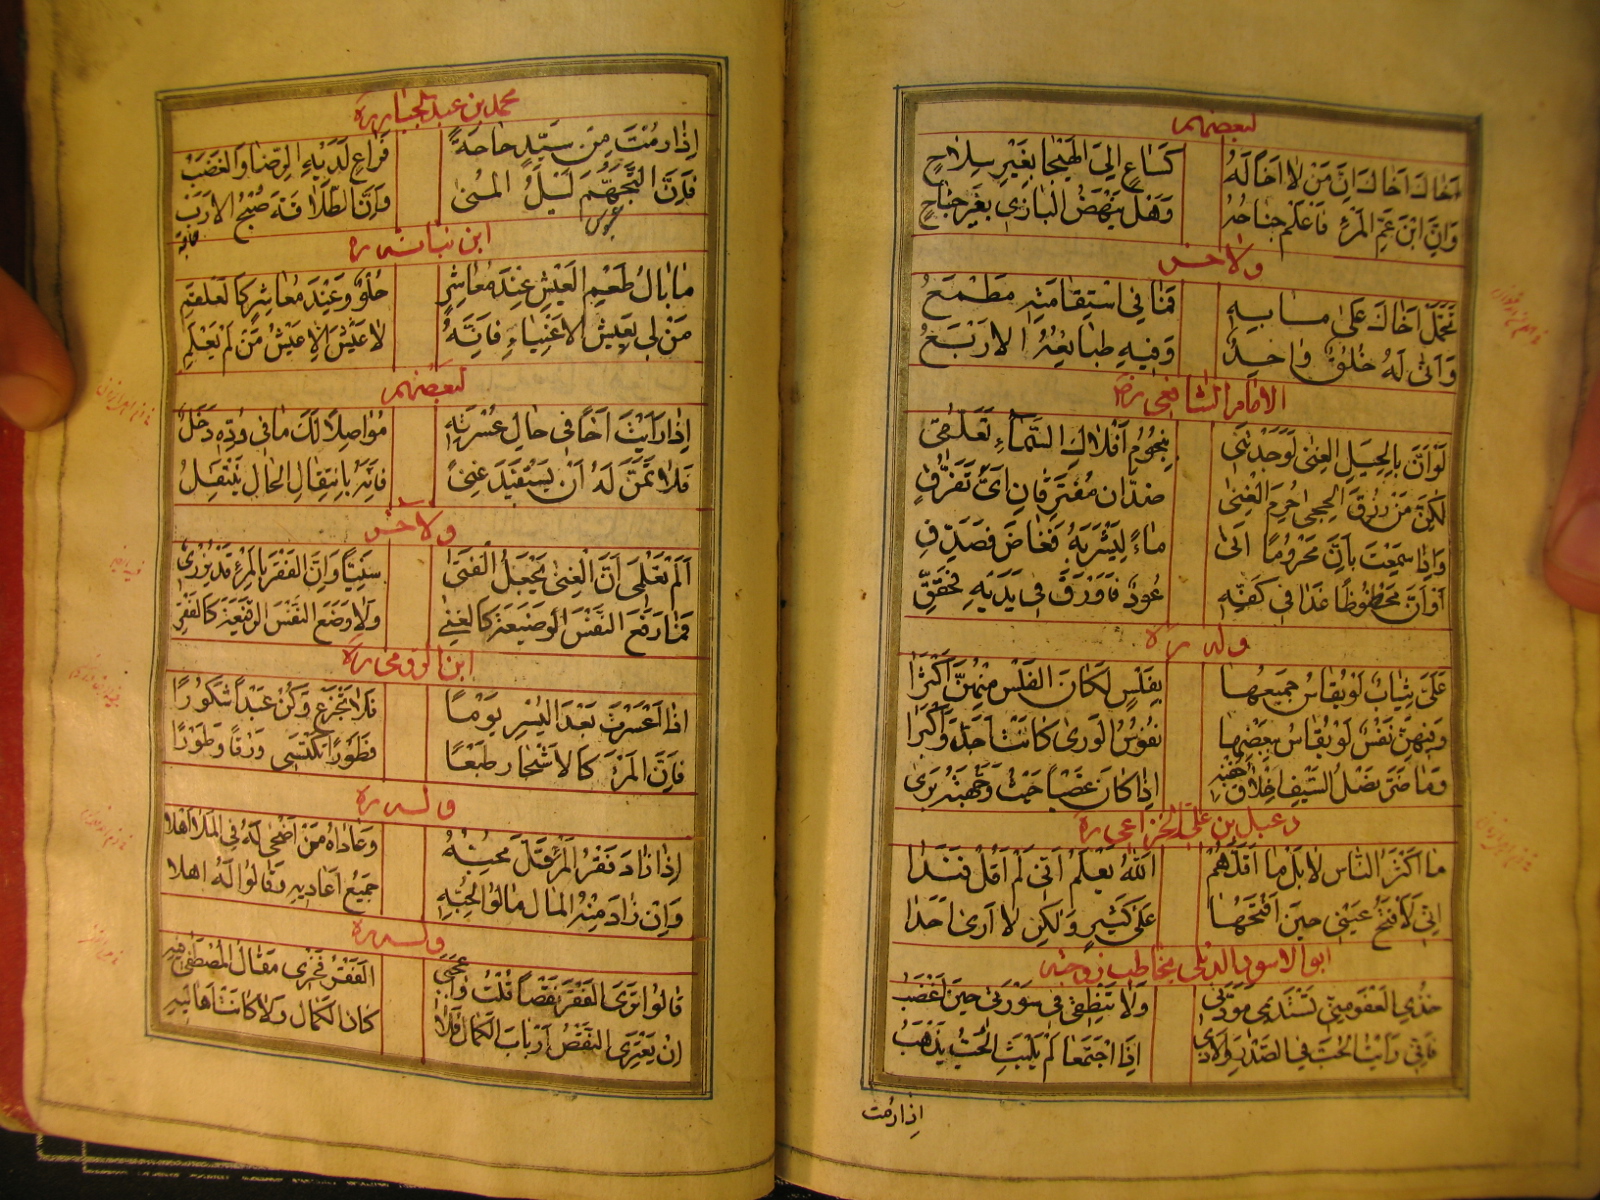 لبعضهم
اَخاكَ اَخاكَ اِنَّ مَنْ لا اَخًا لَهُ كَسَاعٍ اِلَى الهَيْجَا بِغَيْرِ سِلاحٍ
وَاِنَّ ابْنَ عَمِّ المَرْءِ فَاعْلَمْ جَناحُهُ وَهَلْ يَنْهَضُ البَازِي بِغَيْرِ جَناحٍ
ولآخر
تَحَمَّلْ اَخاكَ عَلىٰ مابِهِ فَمَا فِى اسْتِقامَتِهِ مَطْمَعُ
وَاَنّىٰ لَهُ خُلُقٌ واحِدٌ وَفِيهِ طَبايِعُهُ الاَرْبَعُ
الامام الشافعى رض
لَوْ اَنَّ بِالحِيَلِ الغِنىٰ لَوَجَدْتَنى بِنُجُومِ اَفْلاكِ السَّماءِ تَعَلُّقى
لٰكِنَّ مَنْ رُزِقَ الحِجى حُرِمَ الغِنىٰ ضدّان مُفْتَرِقانِ اَىَّ تَفَرُّقٍ
وَاِذا سَمِعْتَ بِاَنَّ مَحْرُومًا اَتىٰ ماءً لِيَشْرَبَهُ فَغاضَ فَصَدِّقِ
اَوْ اَنَّ مَحْظُوظًا غَدا فى كَفِّهِ عُودٌ فَاَوْرَقَ فى يَدَيْهِ فَحَقِّقِ
وله ره
عَلَىَّ ثِيابٌ لَوْ يُقاسُ جَميعُها بِفَلْسٍ لَكانَ الفَلْسُ مِنْهُنَّ اَكْثَرَا
وَفِيهِنَّ نَفْسٌ لَوْ يُقاسُ بِبَعْضِها نُفُوسُ الوَرىٰ كانَتْ اَجَلَّ وَاَكْبَرَا
وَما ضَرَّ نَصْلَ السَّيْفِ اِخْلاقُ اِذا كانَ عَضْبًا حَيْثُ وَجَّهْتَهُ بَرىٰ
دعبل بن على الخزاعى ره
ما اَكْثَرَ النّاسَ لا بَلْ ما اَقَلَّهُمْ اَللّٰهُ يَعْلَمُ اَنّى لَمْ اَقُلْ فَنَدَا
اِنّى لَاَفْتَحُ عَيْنى حِينَ اَفْتَحُها عَلىٰ كَثِيرٍ وَلٰكِنْ لا اَرىٰ اَحَدَا
ابو الاسود الدئلى يخاطب زوجته
خُذِى العَفْوَ مِنّى تَسْتَدِيمى مَوَدَّتى وَلا تَنْطِقى فى سَوْرَتى حِينَ اَغْضَبُ
فَاِنّى رَاَيْتُ الحُبَّ فِى الصَّدْرِ وَالاَذى اِذَا اجْتَمَعا لَمْ يَلْبَثِ الحُبُّ يَذْهَبُ
اِذا رُمْتَ
محمد بن عبد الجبار ره
اِذا رُمْتَ مِنْ سَيِّدٍ حاجَةً فَراعِ لَدَيْهِ الرِّضا وَالغَضَبَ
فَاِنَّ التَّجَهُّمَ لَيْلُ المُنىٰ وَاِنَّ الطَّلاقَةَ صُبْحُ الاَرَبِ
ابن نباته ره
ما بالُ طَعْمِ العَيْشِ عِنْدَ مَعاشِرٍ حُلْوٌ وَعِنْدَ مَعاشِرٍ كَالعَلْقَمِ
مَنْ لى بِعَيْشِ الاَغْنِياءِ فَاِنَّهُ لا عَيْشَ اِلّا عَيْشُ مَنْ لَمْ يَعْلَمِ
لبعضهم
اِذا رَاَيْتَ اَخًا فى حالِ عُسْرَتِهِ مُواصِلًا لَكَ ما فى وُدِّهِ دَخَلُ
فَلا تَمَنَّ لَهُ اَنْ يَسْتَفِيدَ غِنىً فَاِنَّهُ بِانْتِقالِ الحالِ يَنْتَقِلُ
ولآخر
اَلَمْ تَعْلَمى اَنَّ الغِنىٰ يَجْعَلُ الفَتىٰ سَنِيًّا وَاِنَّ الفَقْرَ بِالمَرْءِ قَدْ يُزْرى
فَما رَفَعَ النَّفْسَ الوَضِيعَةَ كَالغِنىٰ وَلا وَضَعَ النَّفْسَ الرَّفِيعَةَ كَالفَقْرِ
ابن الرومى ره
اِذا اَعْسَرْتَ بَعْدَ اليُسْرِ يَوْمًا فَلا تَجْزَعْ وَكُنْ عَبْدًا شَكُورًا
فَاِنَّ المَرْءَ كَالاَشْجارِ طَبْعًا فَطَوْرًا تَكْتَسى وَرَقًا وَطَوْرًا
وله ره
اِذا زادَ فَقْرُ المَرْءِ قَلَّ مُحِبُّهُ وَعاداهُ مَنْ اَضْحى لَهُ فِى المَلا اَهْلا
وَاِنْ زادَ مِنْهُ المالُ مالُوا لِحُبِّهِ جَمِيعُ اَعادِيهِ وَقالُوا لَهُ اَهْلا
وله ره
قالُوا نَرَى الفَقْرَ نَقْصًا قُلْتُ وا عَجَبى الفَقْرُ فَخْرى مَقالُ المُصْطَفىٰ فِيهِ
اِنْ يَعْتَرِى النَّقْصُ اَرْبابَ الكَمالِ فَلا كانَ الكَمالُ وَلا كانَتْ اَهالِيهِ